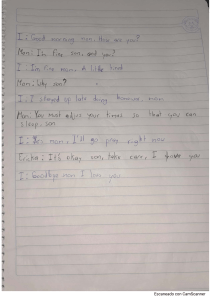 I: Good morning mom, How are you?
Mom: I'm fine son, and you?
I: I'm fine mom. A little tired
Mom: Why son?
I: I stayed up late doing homework, mom
Mom: You must adjust your times so that you can
sleep, son
I: Yes mom, I'll go right now
It's okay son, take care, I love you
I: Goodbye mom I love you
Escaneado con CamScanner